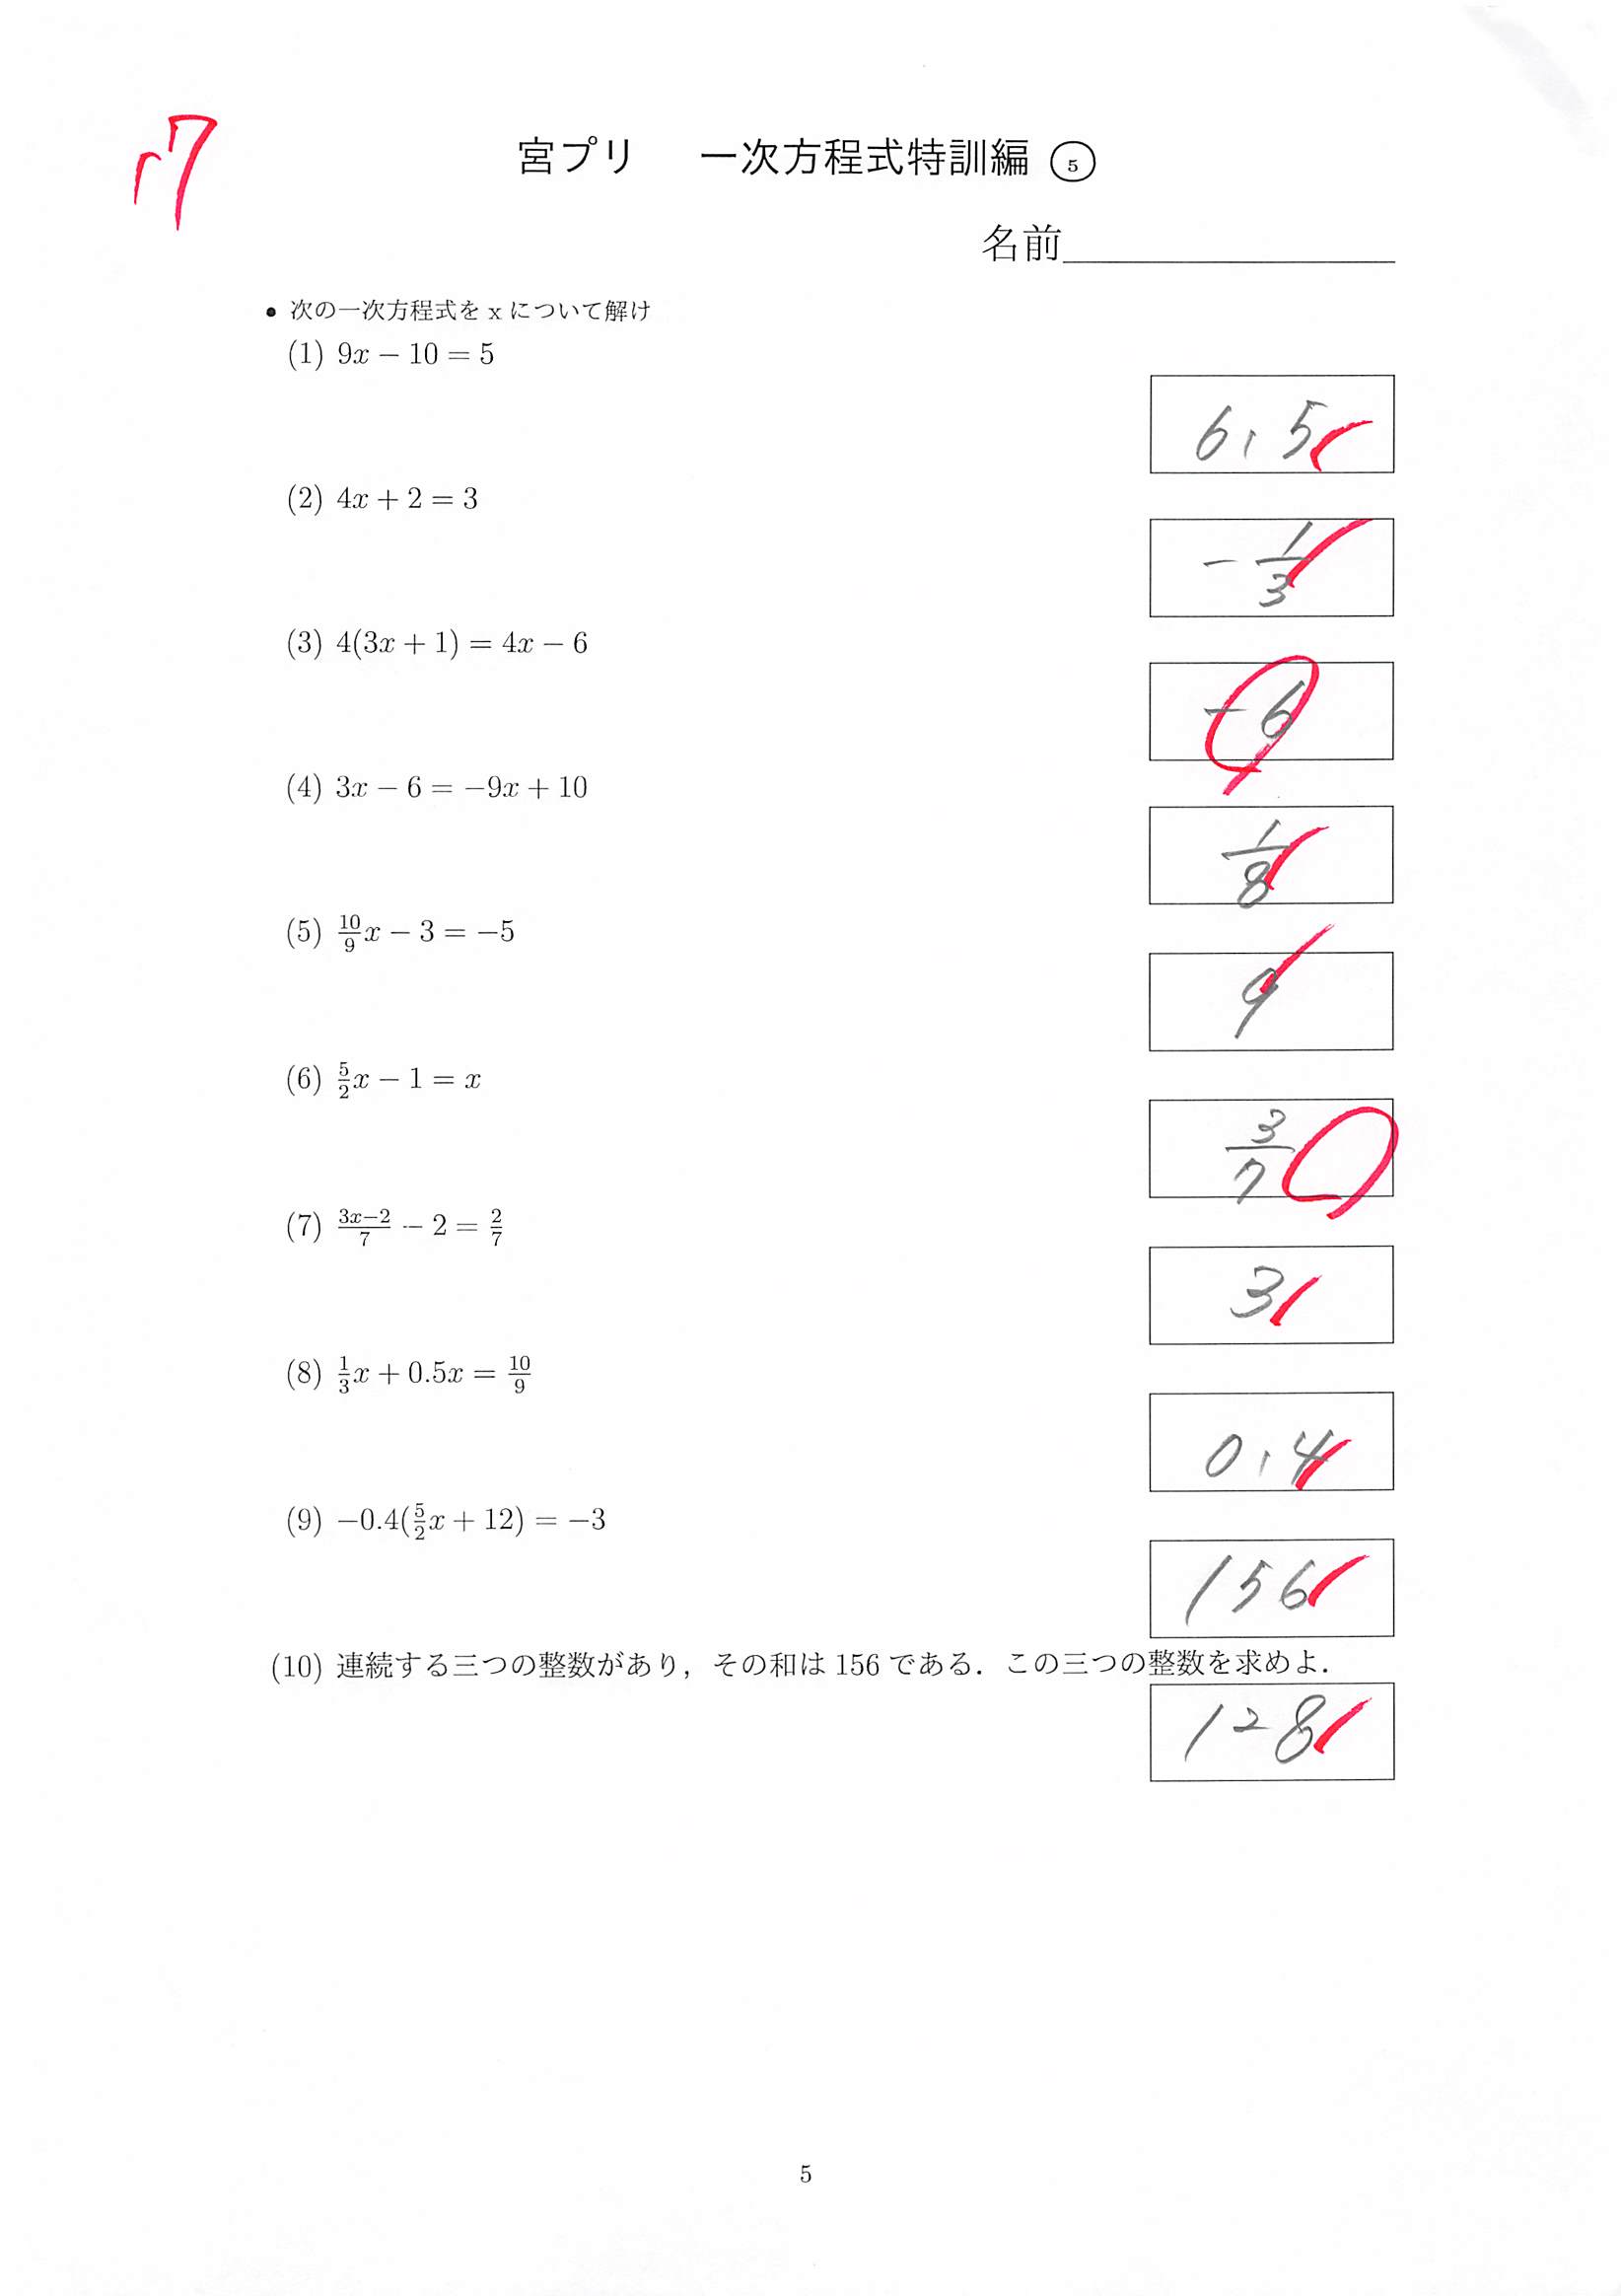 宮プリ 一次方程式特訓編 ⑤
名前
• 次の一次方程式を x について解け
(1) 9x − 10 = 5
6.5
(2) 4x + 2 = 3
− 1/3
(3) 4(3x + 1) = 4x − 6
−6
(4) 3x − 6 = −9x + 10
1/8
(5) 10/9 x − 3 = −5
9
(6) 5/2 x − 1 = x
3/7
(7) (3x−2)/7 − 2 = 2/7
3
(8) 1/3 x + 0.5x = 10/9
0.4
(9) −0.4(5/2 x + 12) = −3
156
(10) 連続する三つの整数があり，その和は 156 である．この三つの整数を求めよ．
128
5